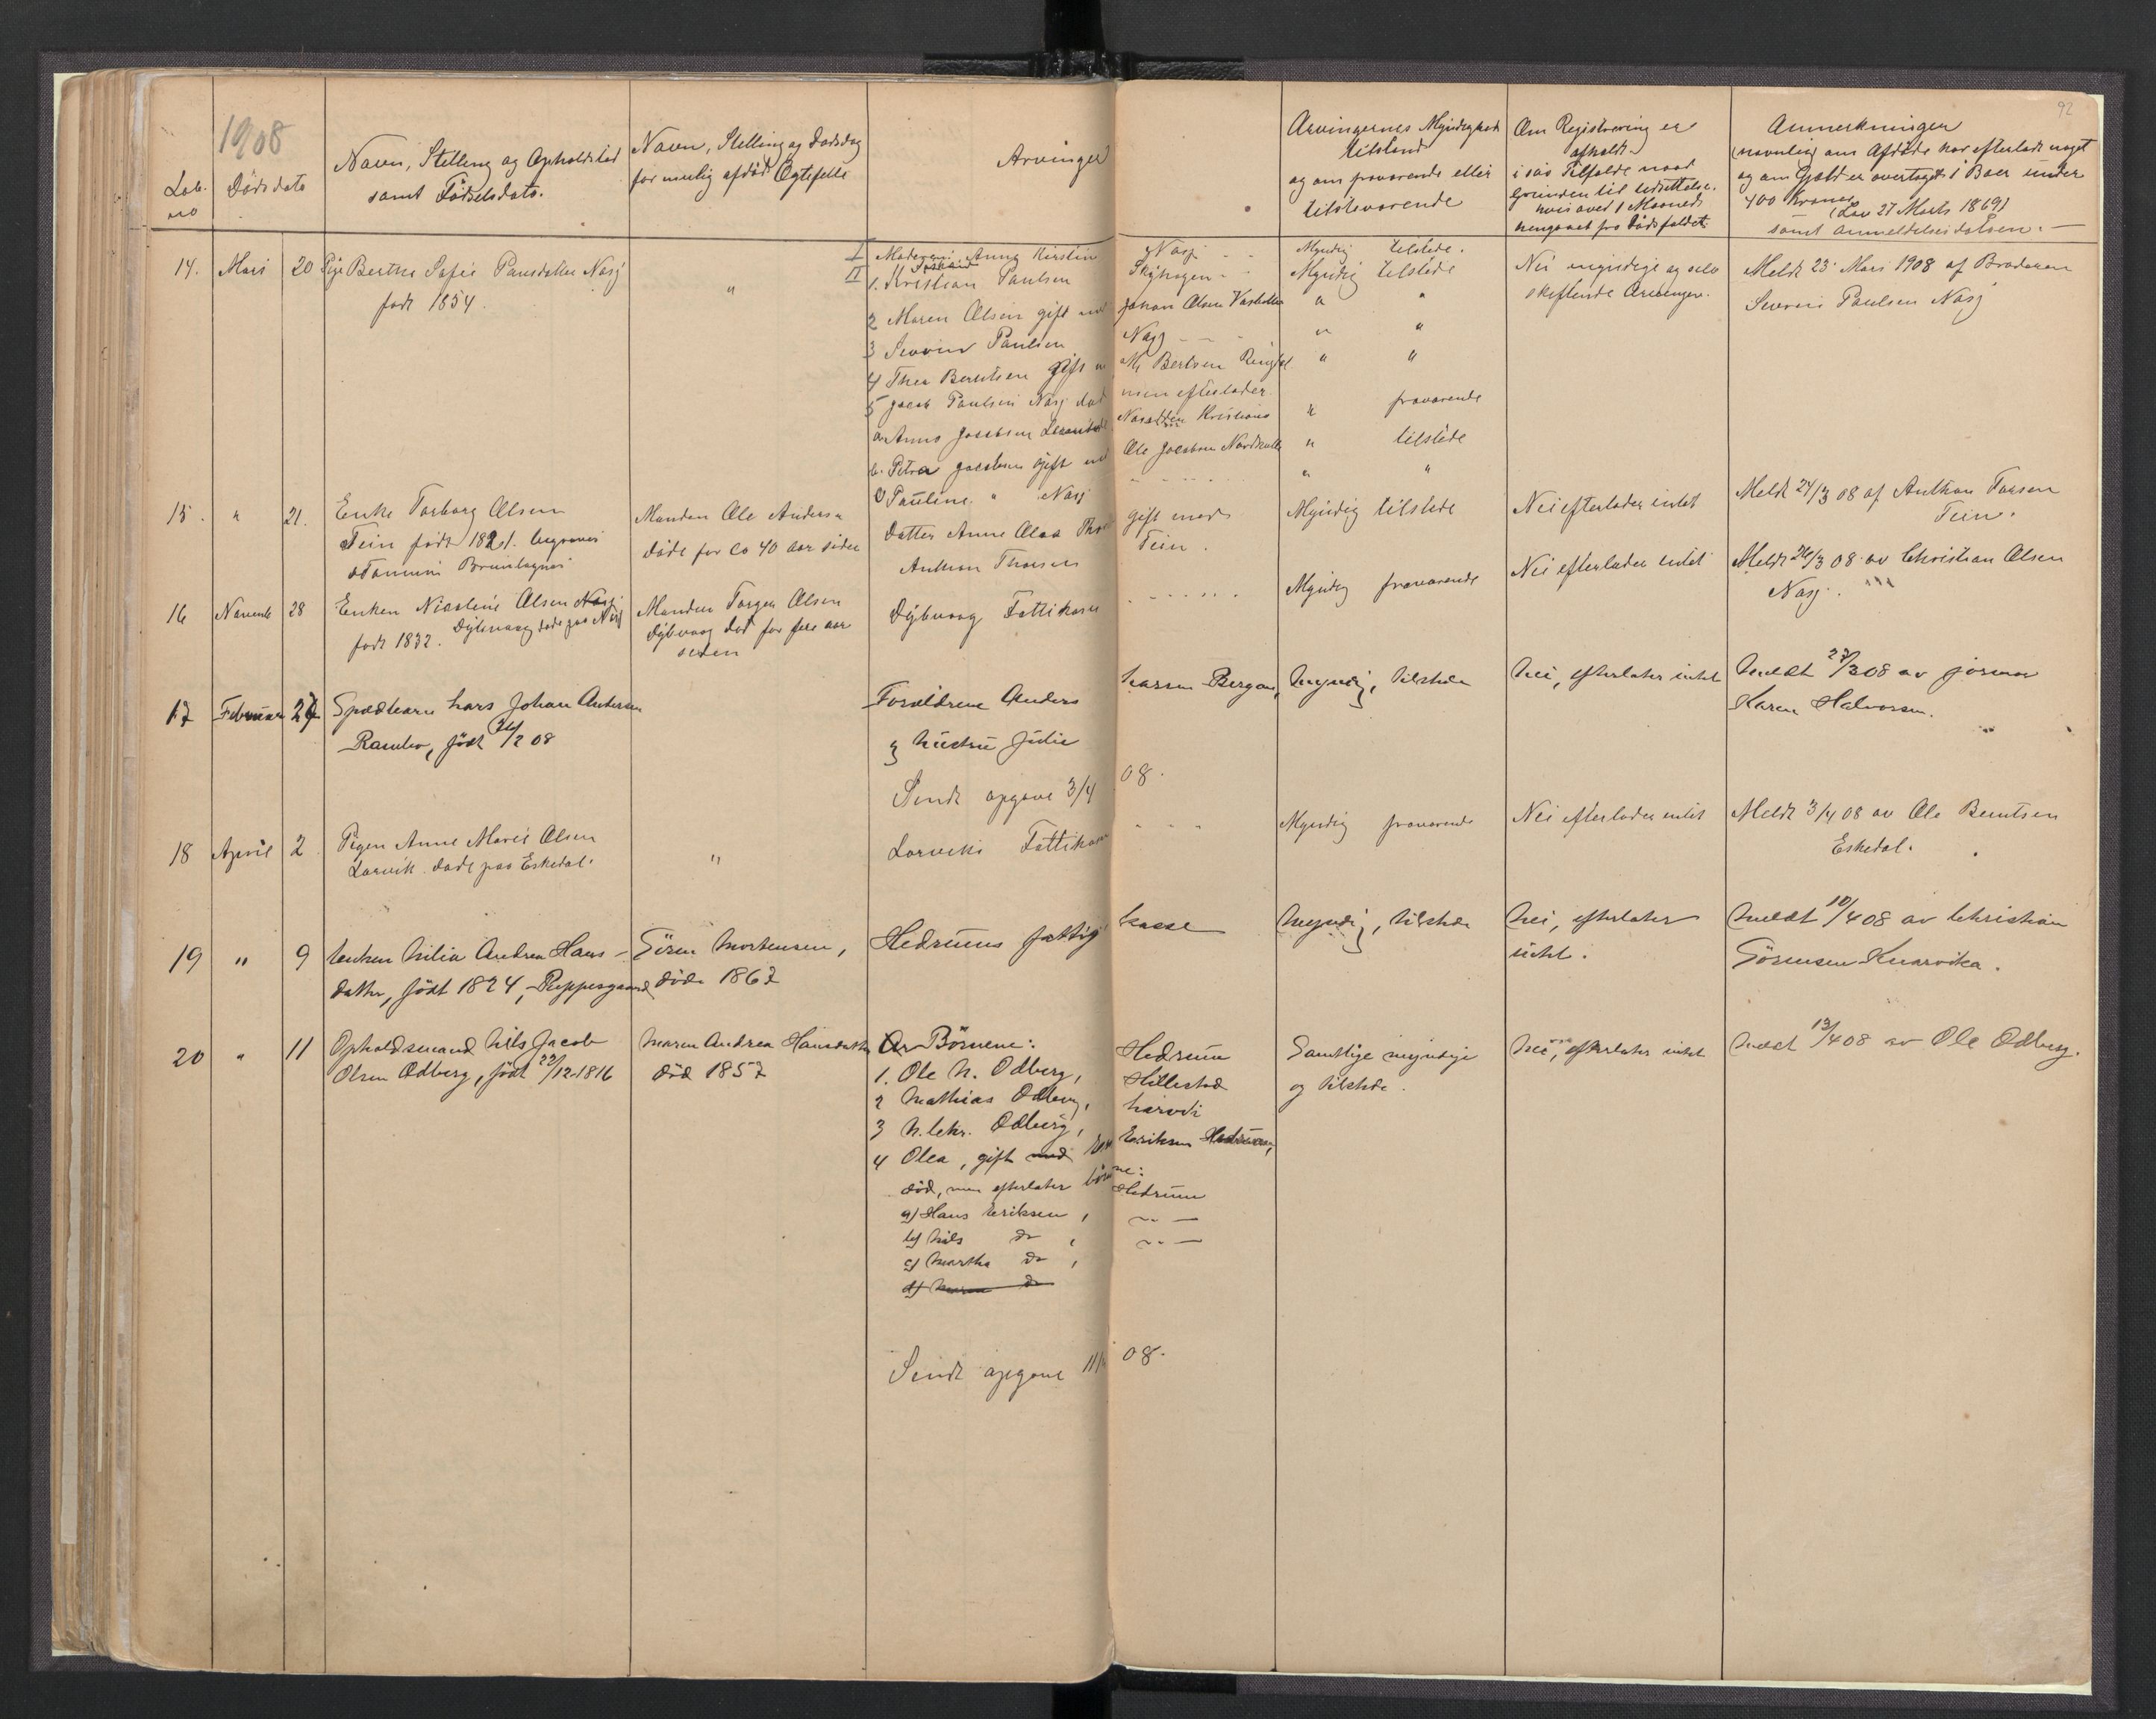 92
1908
Løb. no
Dødsdato
Navn, Stilling og Opholdsted
samt Fødselsdato.
Navn, Stilling og Dødsdag
for mulig afdød Ægtefelle
Arvinger
Arvingernes Myndigheds
tilstand
og om fraværende eller
tilsteværende
Om Registrering er
afholdt
i saa Tilfælde naar
Grunden til Udsettelse.
hvis over 1 Maaned
hengaaet fra Dødsfaldet.
Anmerkninger
(navnlig om Afdøde har efterladt noget
og om Gjæld er overtaget i Boer under
400 Kroner
(Lov 27 Marts 1869)
samt Anmeldelsesdatoen. —
14. Mars 20 Pige Berthe Sofie Paulsdatter Nasj
født 1854.
"
I Moderen Anna Kirstin Nasj - -
II Søskend
1. Kristian Paulsen Skjhagen - -
2 Maren Olsen gift med Johan Olsen
3 Severin Paulsen Nasj - - -
4 Thea Berntsen gift m
5 Jacob Paulsen Nasj død men efterlader
a Anna Jacobsen Kristiania
b. Petra Jacobsen gift med Ole Jacobsen
c Pauline " Nasj - - - - -
Myndig tilstede.
Myndig tilstede
" "
" "
" "
" fraværende
" tilstede
" "
Nei myndige og selv
skiftende Arvinger.
Meldt 23 Mars 1908 af Broderen
Severin Paulsen Nasj
15. " 21. Enke Torborg Olsen
Tein født 1821. begraves
Tanum Brunlagnes
Manden Ole Anders
døde for ca 40 aar siden
Datter Anne Olea gift med
Anthon Thorsen Tein.
Myndig tilstede
Nei efterlader intet
Meldt 24/3 08 af Anthon Torsen
Tein.
16 Novemb 28 Enken Nicoline Olsen
Dybvaag døde paa Nasj
født 1832.
Manden Torger Olsen
Dybvaag død for flere aar
siden
Dybvaag Fattikasse - - - - - -
Myndig fraværende
Nei efterlader intet
Meldt 26/3 08 av Christian Olsen
Nasj.
17 Februar 27 Spædbarn Lars Johan Andersen
Ramber, født 24/2 08
Forældrene Anders Larsen Bergan,
og hustru Julie
Myndig, tilstede
Nei, efterlater intet
Meldt 27/3 08 av jormor
Karen Halvorsen.
Sendt opgave 3/4 08.
18 April 2 Pigen Anne Marie Olsen
Larvik døde paa Eskedal.
"
Larviks Fattikasse - - -
Myndig fraværende
Nei efterlader intet
Meldt 3/4 08 av Ole Berntsen
Eskedal.
19 " 9 Enken Milia Andrea Hans-
datter, født 1824, Seppesgaard
Sören Mortensen,
døde 1867
Hedrums fattigkasse
Myndig, tilstede
Nei, efterlater
intet.
Meldt 10/4 08 av Christian
Sörensen Kvarvika.
20 " 11 Opholdsmand Nils Jacob
Olsen Odberg, født 22/12 1816
Maren Andrea Hansdatter
død 1857
Börnene:
1. Ole N. Odberg, Hedrum
2 Mathias Odberg, Hillestad
3 N. Chr. Odberg, Larvik
4 Olea, gift med Eriksen Hedrum,
død, men efterlater börnene:
a) Hans Eriksen, Hedrum
b) Nils do , -"-
c) Martha do , -"-
d) Maren do
Samtlige myndige
og tilstede.
Nei, efterlater intet
Meldt 13/4 08 av Ole Odberg.
Sendt opgave 11/ 08.